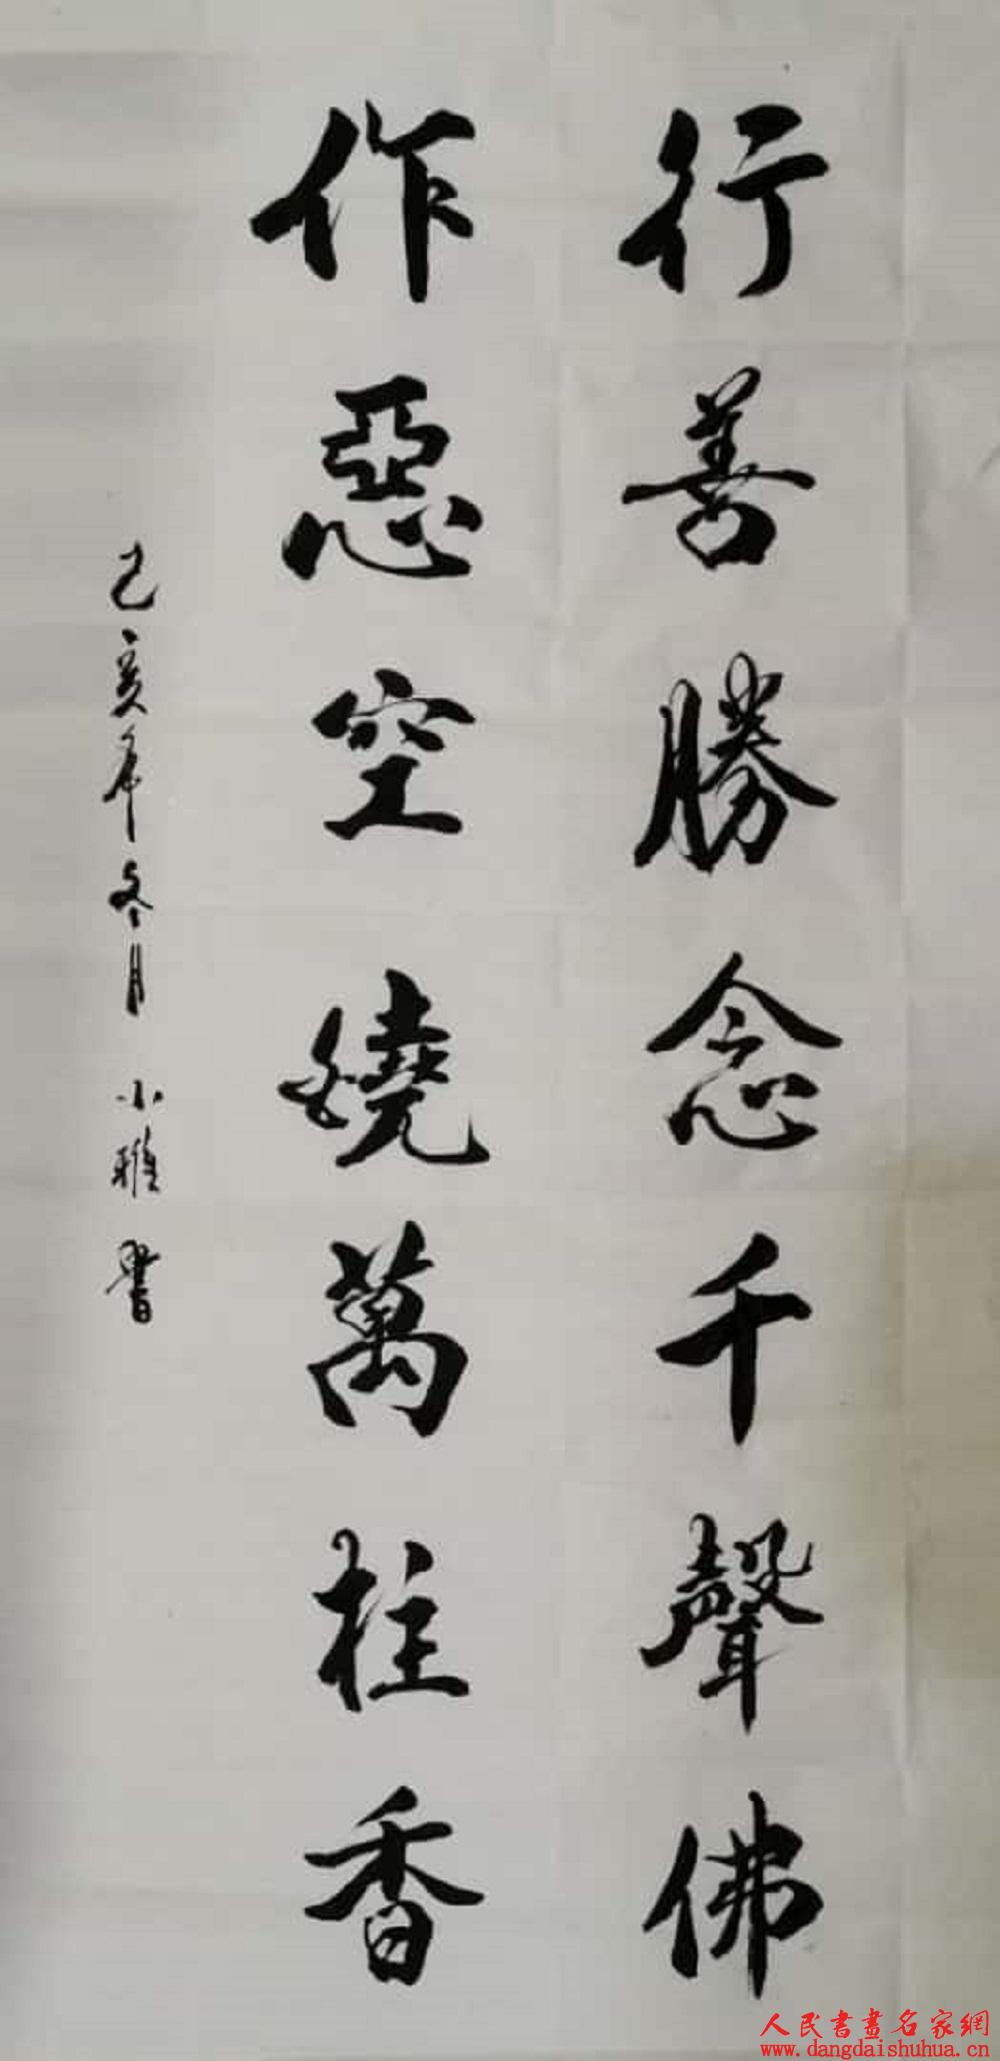 行善勝念千聲佛
作惡空繞萬柱香
己亥年冬月 小雅書
人民書畫名家網
www.dangdaishuhua.cn